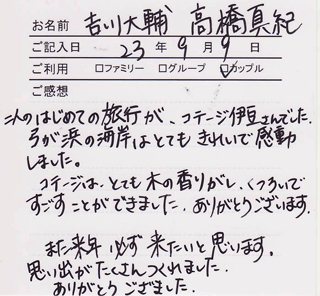 お名前 吉川大輔 高橋真紀
ご記入日 23年9月9日
ご利用 □ファミリー □グループ ☑カップル
ご感想
二人のはじめての旅行が、コテージ伊豆さんでした。
弓が浜の海岸はとてもきれいで感動
しました。
コテージは、とても木の香りがし、くつろいで
すごすことができました。ありがとうございます。
また来年必ず来たいと思います。
思い出がたくさんつくれました。
ありがとうござました。